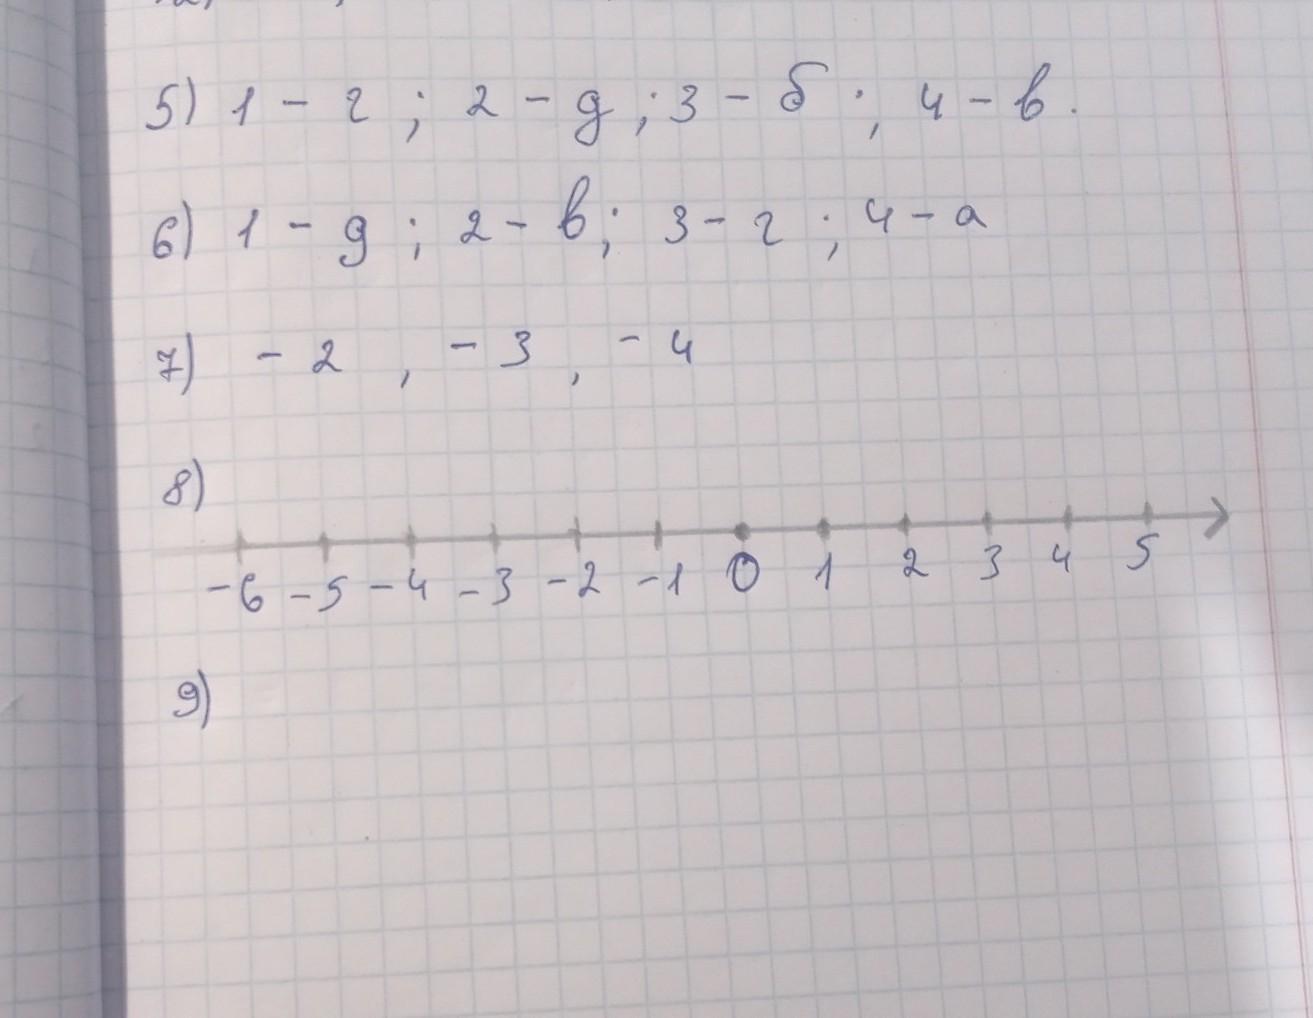 5) 1 – г ; 2 – д ; 3 – б ; 4 – в .
6) 1 – д ; 2 – в ; 3 – г ; 4 – а
7) – 2 , – 3 , – 4
8)
–6 –5 –4 –3 –2 –1 0 1 2 3 4 5
9)